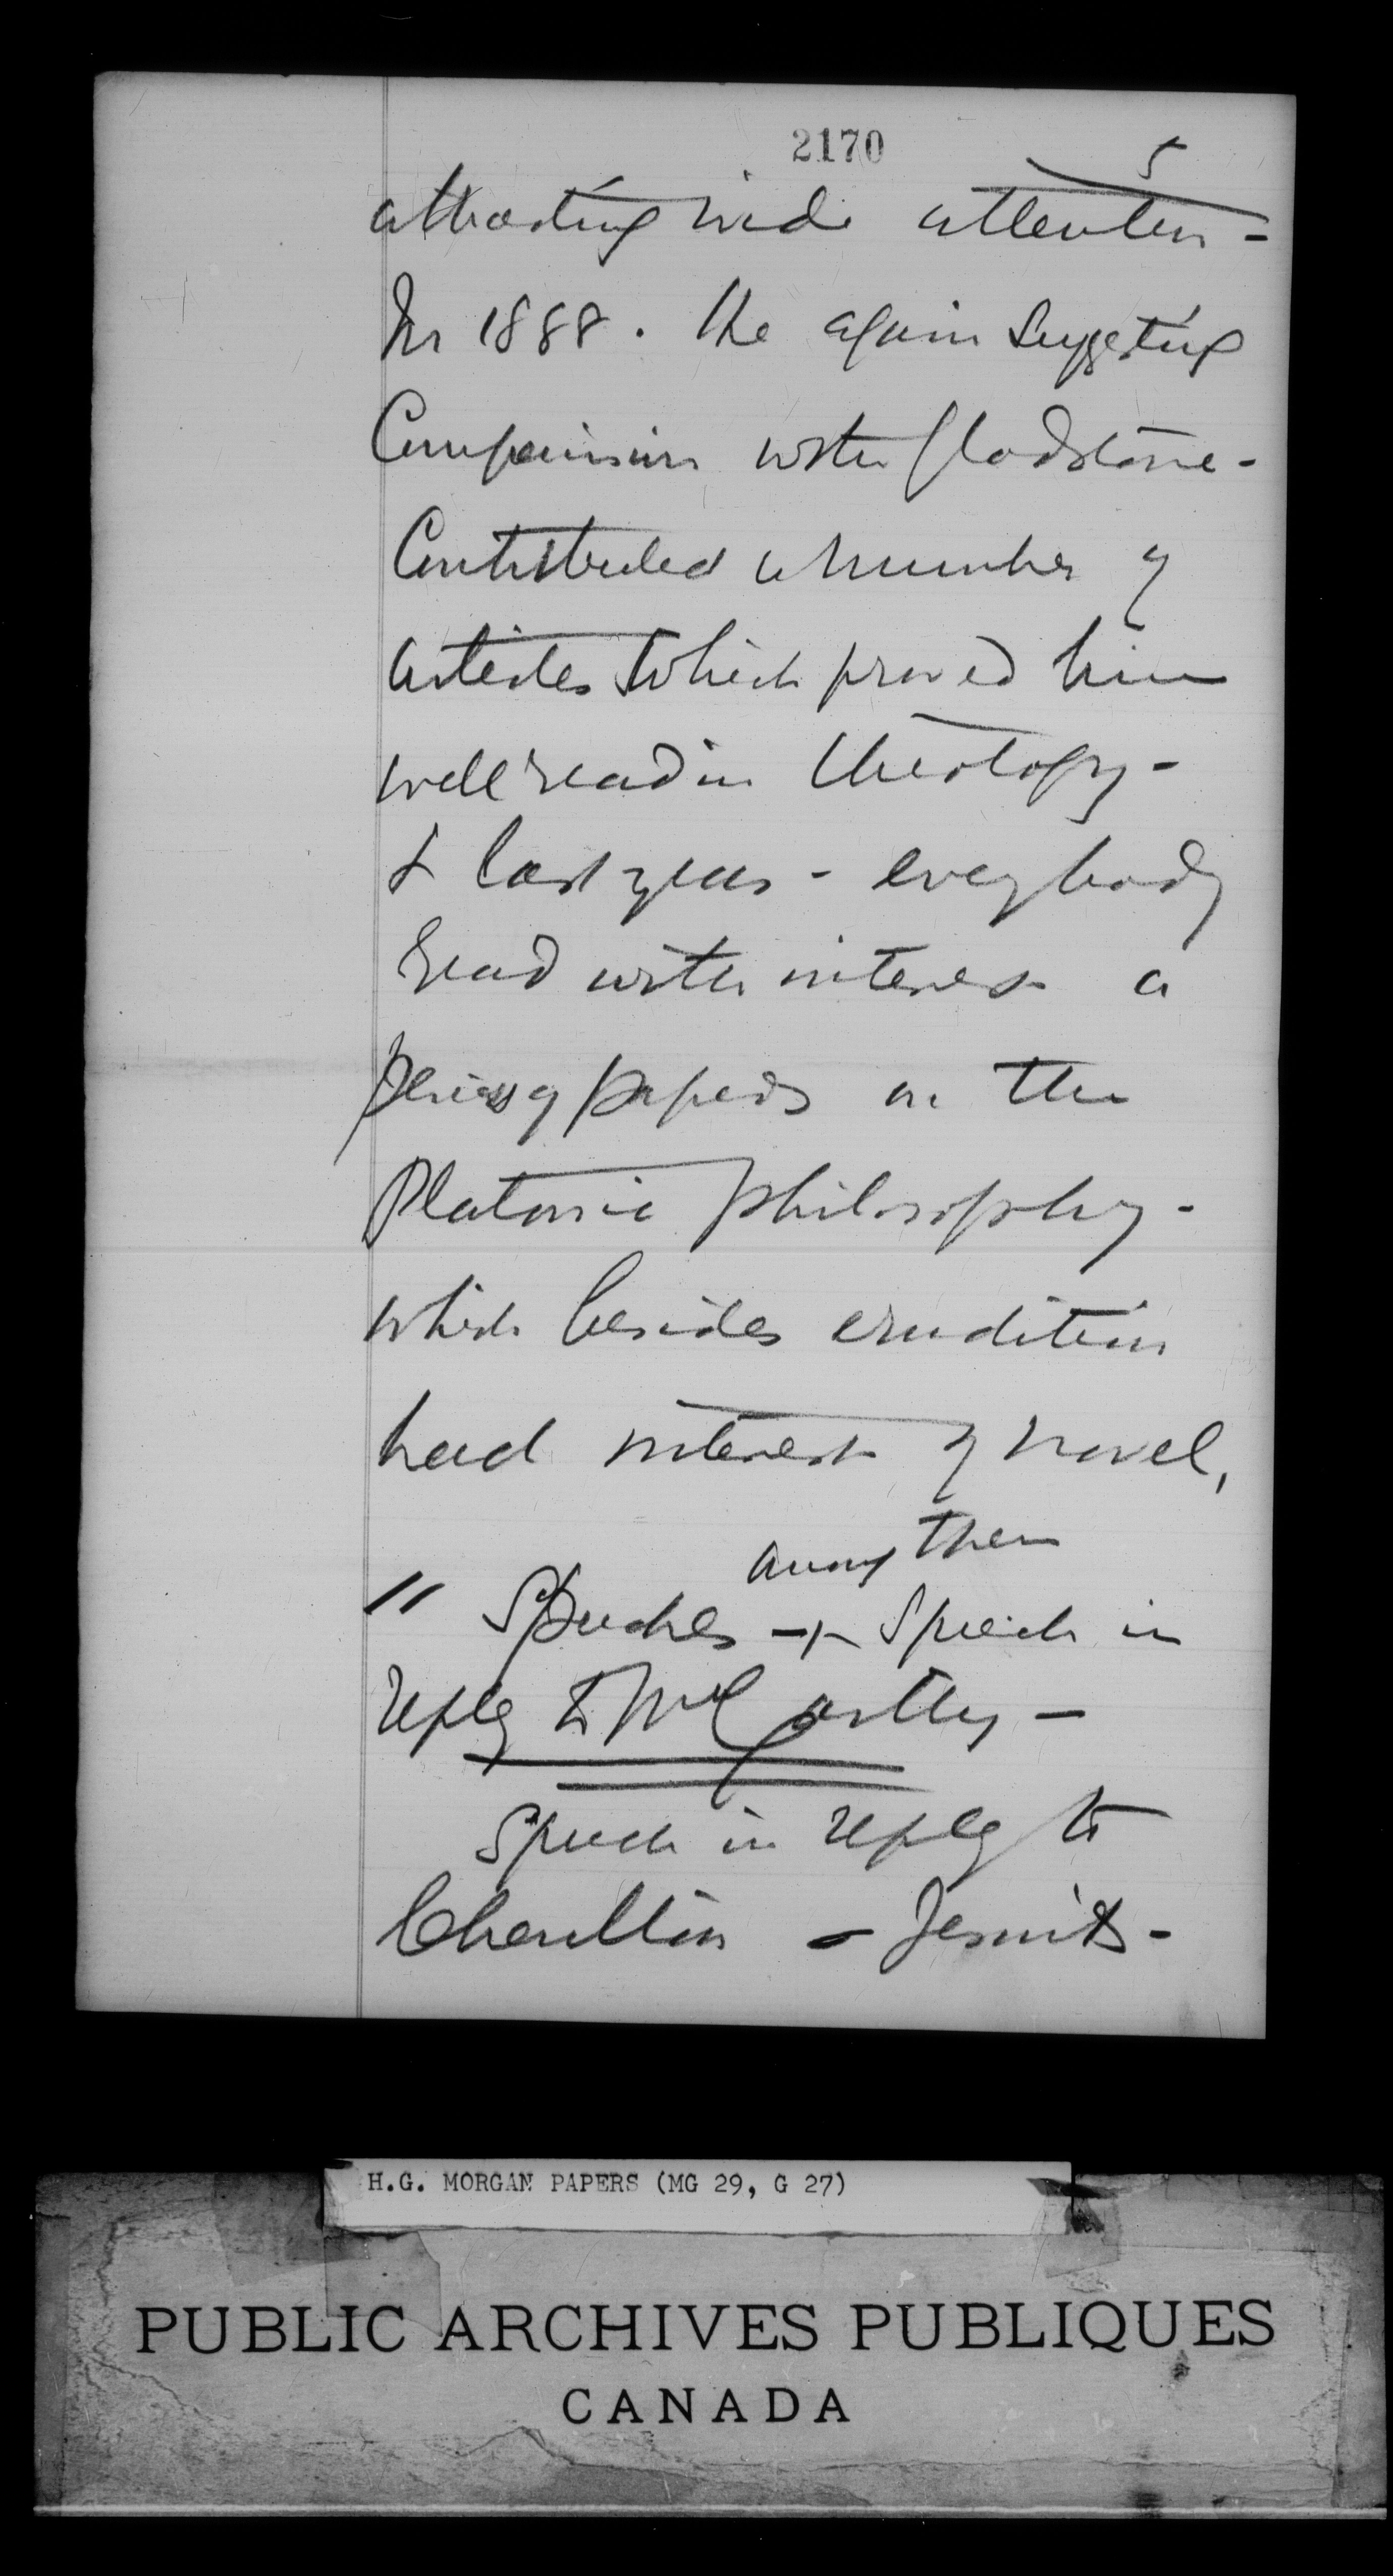 2170
5
attracting wide attention -
In 1888. He again suggesting
Comparison with Gladstone -
Contributed a number of
articles which proved him
well read in theology -
& last year - everybody
read with interest a
series of papers on the
Platonic philosophy -
which besides erudition
had interest of novel,
among them
" Speeches - Speech in
reply to McCarthy -
Speech in reply to
Charlton - Jesuits -
H.G. MORGAN PAPERS (MG 29, G 27)
PUBLIC ARCHIVES PUBLIQUES
CANADA